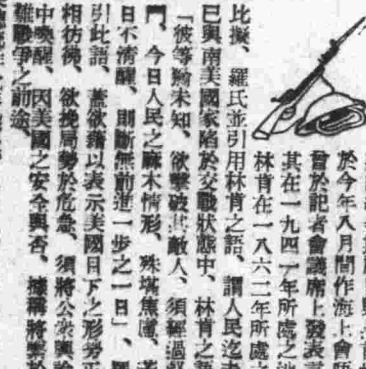 於今年八月間作海上會晤
會於記者會議席上發表言
其在一九四一年所處之地
林肯在一八六二年所處之
比擬、羅氏並引用林肯之語、謂人民迄未
已與南美國家陷於交戰狀態中、林肯之語
「彼等尚未知、欲擊破其敵人、須經過
鬥、今日人民之麻木情形、殊堪焦慮、若
日不清醒、則斷無前進一步之一日」、羅
引此語、蓋欲藉以表示美國目下之形勢正
相彷彿、欲挽局勢於危急、須將公衆輿論
中喚醒、因美國之安全與否、據稱將繫於
戰爭之前途、